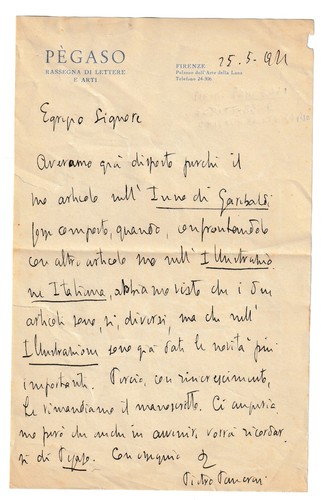 PÈGASO
RASSEGNA DI LETTERE
E ARTI
FIRENZE
Palazzo dell'Arte della Lana
Telefono 24-106
25.5.1931
Egregio Signore
Avevamo già disposto perchè il
suo articolo sull'Inno di Garibaldi
fosse composto, quando, confrontandolo
con altro articolo suo sull'Illustrazio
ne Italiana, abbiamo visto che i due
articoli sono, sì, diversi, ma che nell'
Illustrazione sono già dati le novità più
importanti. Perciò, con rincrescimento,
Le rimandiamo il manoscritto. Ci auguria
mo però che anche in avvenire, vorrà ricordar
si di Pègaso. Con ossequio
Pietro Pancrazi